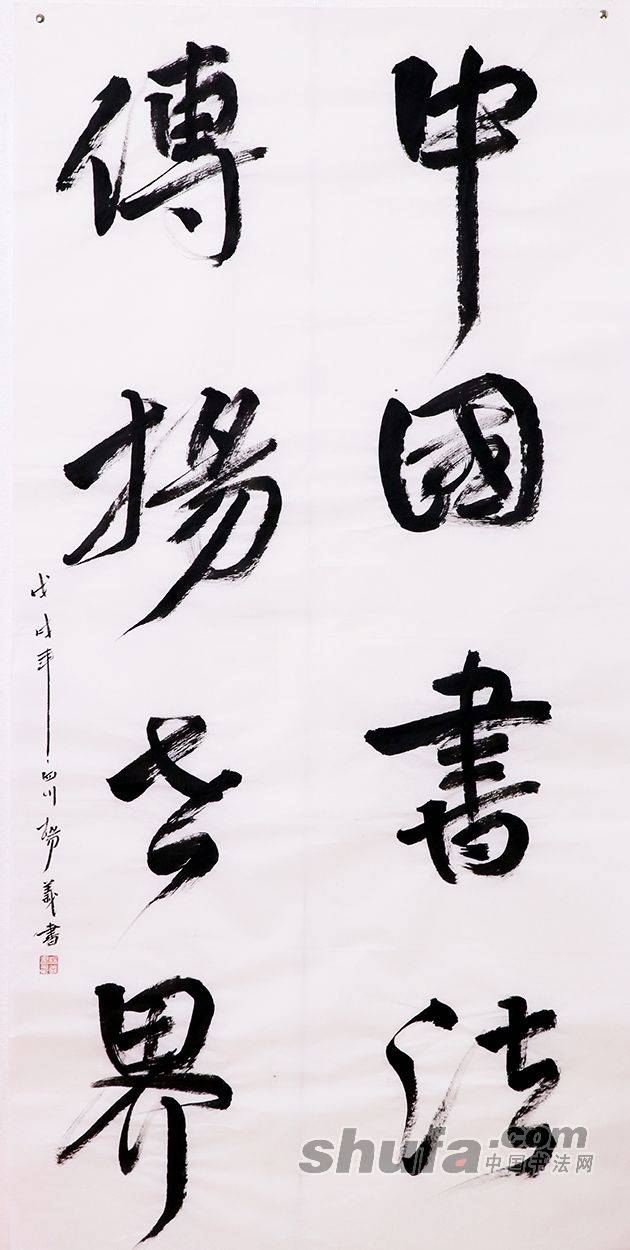 中國書法
傳揚世界
戊戌年
四川楊義書
shufa.com
中国书法网